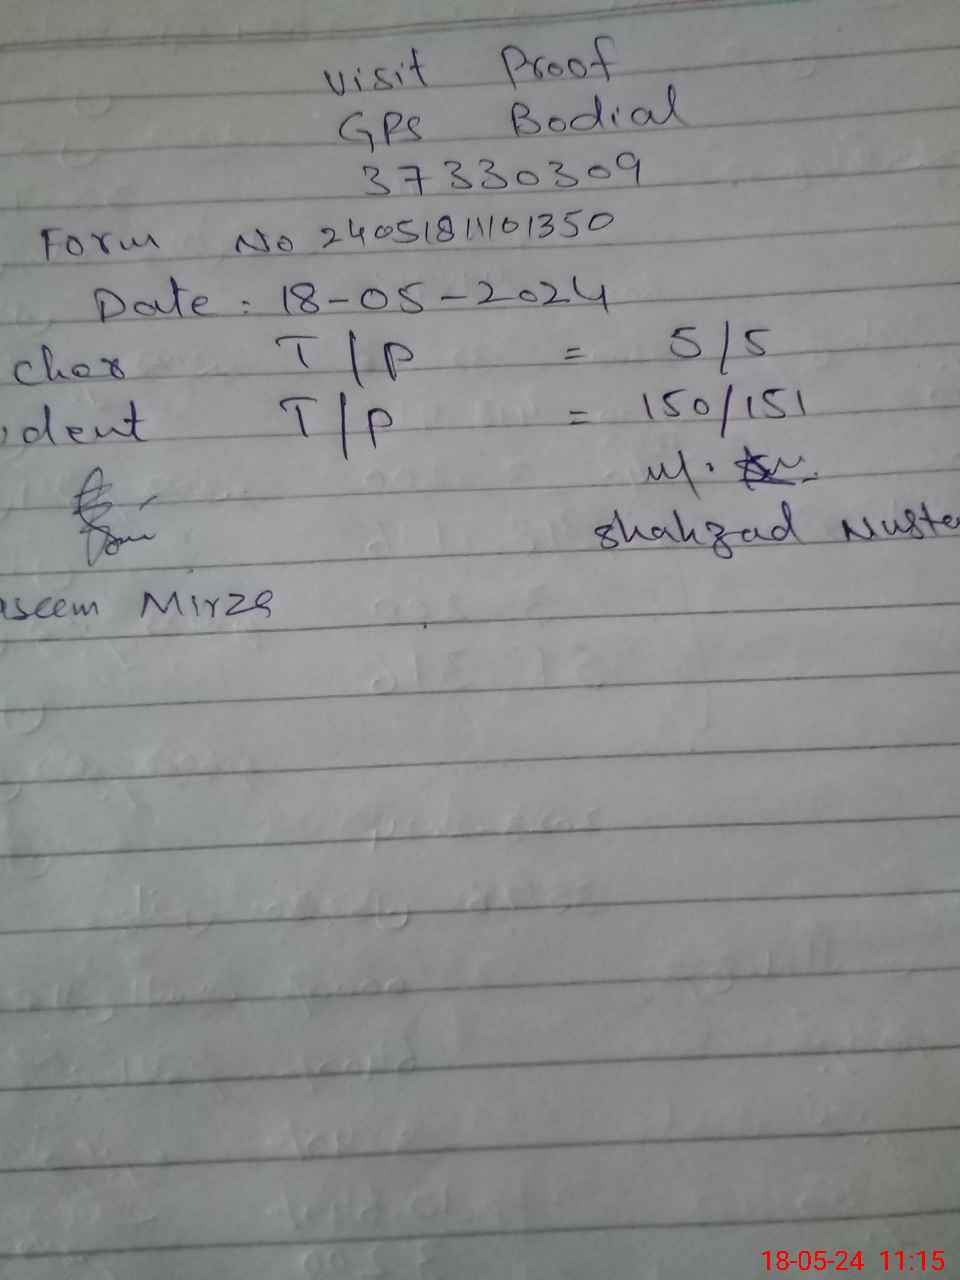 Visit Proof
GPS Bodial
37330309
Form No 24051811101350
Date : 18-05-2024
cher T/P = 5/5
dent T/P = 150/151
shahzad Muste
aseem Mirza
18-05-24 11:15